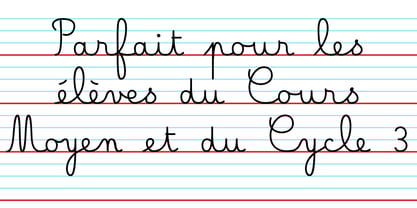 Parfait pour les
élèves du Cours
Moyen et du Cycle 3